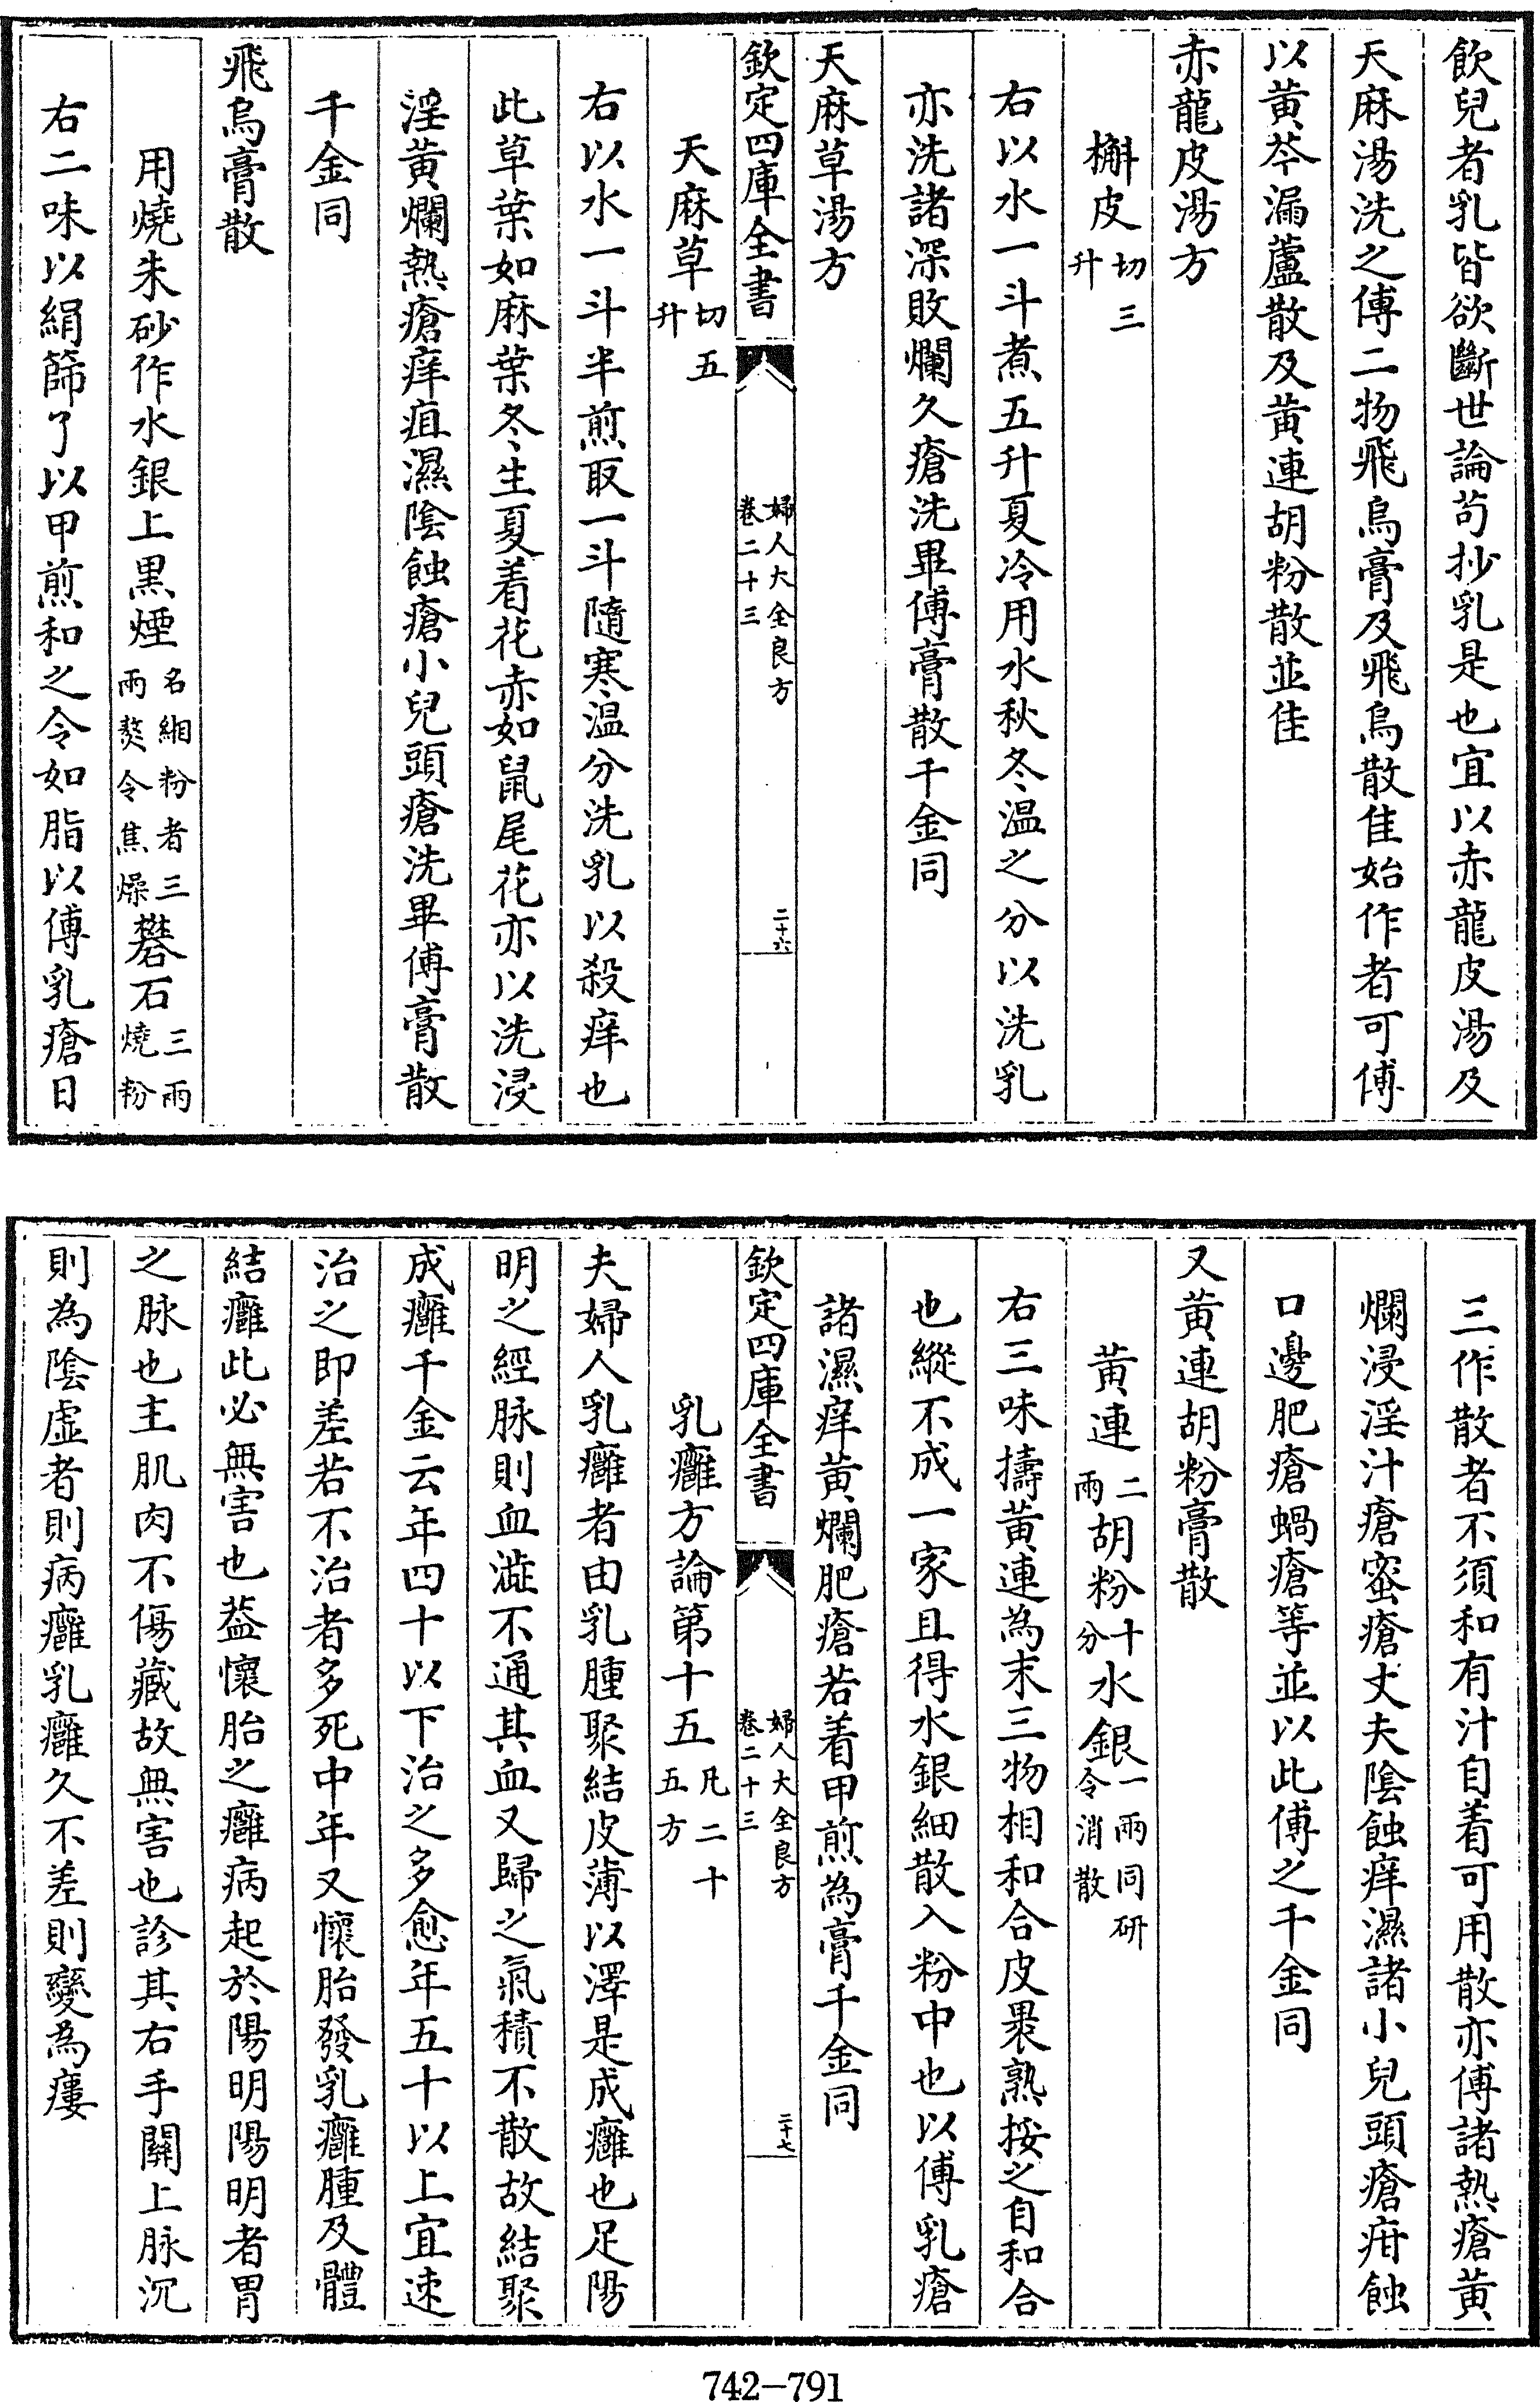 飲兒者乳皆欲斷世論苟抄乳是也宜以赤龍皮湯及
天麻湯洗之傅二物飛烏膏及飛烏散佳始作者可傅
以黄芩漏蘆散及黄連胡粉散並佳
赤龍皮湯方
槲皮切三升
右以水一斗煮五升夏冷用水秋冬温之分以洗乳
亦洗諸深敗爛久瘡洗畢傅膏散千金同
天麻草湯方
欽定四庫全書 婦人大全良方卷二十三 二十六
天麻草切五升
右以水一斗半煎取一斗隨寒温分洗乳以殺痒也
此草葉如麻葉冬生夏着花赤如鼠尾花亦以洗浸
淫黄爛熱瘡痒疽濕陰蝕瘡小兒頭瘡洗畢傅膏散
千金同
飛烏膏散
用燒朱砂作水銀上黒煙名緗粉者三兩熬令焦燥礬石三兩燒粉
右二味以絹篩了以甲煎和之令如脂以傅乳瘡日
三作散者不須和有汁自着可用散亦傅諸熱瘡黄
爛浸淫汁瘡蜜瘡丈夫陰蝕痒濕諸小兒頭瘡疳蝕
口邊肥瘡蝸瘡等並以此傅之千金同
又黄連胡粉膏散
黄連二兩胡粉十分水銀一兩同研令消散
右三味擣黄連為末三物相和合皮裹熟挼之自和合
也縱不成一家且得水銀細散入粉中也以傅乳瘡
諸濕痒黄爛肥瘡若着甲煎為膏千金同
欽定四庫全書 婦人大全良方卷二十三 二十七
乳癰方論第十五凡二十五方
夫婦人乳癰者由乳腫聚結皮薄以澤是成癰也足陽
明之經脉則血澁不通其血又歸之氣積不散故結聚
成癰千金云年四十以下治之多愈年五十以上宜速
治之即差若不治者多死中年又懷胎發乳癰腫及體
結癰此必無害也葢懷胎之癰病起於陽明陽明者胃
之脉也主肌肉不傷藏故無害也診其右手關上脉沉
則為陰虚者則病癰乳癰久不差則變為瘻
742-791